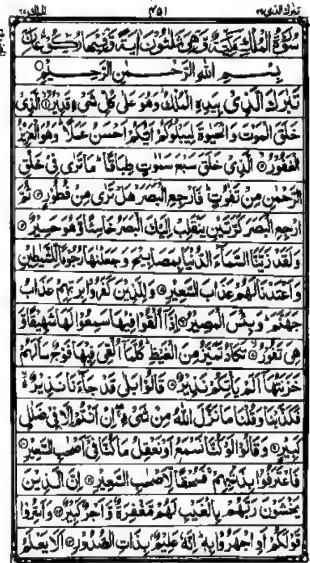 تبرك الذي ٢٩ ٤٥١ الملك ٦٧
سُوْرَةُ الْمُلْكِ مَكِّيَّةٌ وَّهِيَ ثَلٰثُوْنَ اٰيَةً وَّفِيْهَا رُكُوْعَانِ
بِسْمِ اللهِ الرَّحْمٰنِ الرَّحِيْمِ
تَبٰرَكَ الَّذِيْ بِيَدِهِ الْمُلْكُ وَهُوَ عَلٰى كُلِّ شَيْءٍ قَدِيْرٌ الَّذِيْ
خَلَقَ الْمَوْتَ وَالْحَيٰوةَ لِيَبْلُوَكُمْ اَيُّكُمْ اَحْسَنُ عَمَلًا وَهُوَ الْعَزِيْزُ
الْغَفُوْرُ الَّذِيْ خَلَقَ سَبْعَ سَمٰوٰتٍ طِبَاقًا مَا تَرٰى فِيْ خَلْقِ
الرَّحْمٰنِ مِنْ تَفٰوُتٍ فَارْجِعِ الْبَصَرَ هَلْ تَرٰى مِنْ فُطُوْرٍ ثُمَّ
ارْجِعِ الْبَصَرَ كَرَّتَيْنِ يَنْقَلِبْ اِلَيْكَ الْبَصَرُ خَاسِئًا وَّهُوَ حَسِيْرٌ
وَلَقَدْ زَيَّنَّا السَّمَآءَ الدُّنْيَا بِمَصَابِيْحَ وَجَعَلْنٰهَا رُجُوْمًا لِّلشَّيٰطِيْنِ
وَاَعْتَدْنَا لَهُمْ عَذَابَ السَّعِيْرِ وَلِلَّذِيْنَ كَفَرُوْا بِرَبِّهِمْ عَذَابُ
جَهَنَّمَ وَبِئْسَ الْمَصِيْرُ اِذَآ اُلْقُوْا فِيْهَا سَمِعُوْا لَهَا شَهِيْقًا وَّ
هِيَ تَفُوْرُ تَكَادُ تَمَيَّزُ مِنَ الْغَيْظِ كُلَّمَآ اُلْقِيَ فِيْهَا فَوْجٌ سَاَلَهُمْ
خَزَنَتُهَآ اَلَمْ يَاْتِكُمْ نَذِيْرٌ قَالُوْا بَلٰى قَدْ جَآءَنَا نَذِيْرٌ
فَكَذَّبْنَا وَقُلْنَا مَا نَزَّلَ اللهُ مِنْ شَيْءٍ اِنْ اَنْتُمْ اِلَّا فِيْ ضَلٰلٍ
كَبِيْرٍ وَقَالُوْا لَوْ كُنَّا نَسْمَعُ اَوْ نَعْقِلُ مَا كُنَّا فِيْٓ اَصْحٰبِ السَّعِيْرِ
فَاعْتَرَفُوْا بِذَنْبِهِمْ فَسُحْقًا لِّاَصْحٰبِ السَّعِيْرِ اِنَّ الَّذِيْنَ
يَخْشَوْنَ رَبَّهُمْ بِالْغَيْبِ لَهُمْ مَّغْفِرَةٌ وَّاَجْرٌ كَبِيْرٌ وَاَسِرُّوْا
قَوْلَكُمْ اَوِ اجْهَرُوْا بِهٖ اِنَّهٗ عَلِيْمٌۢ بِذَاتِ الصُّدُوْرِ اَلَا يَعْلَمُ